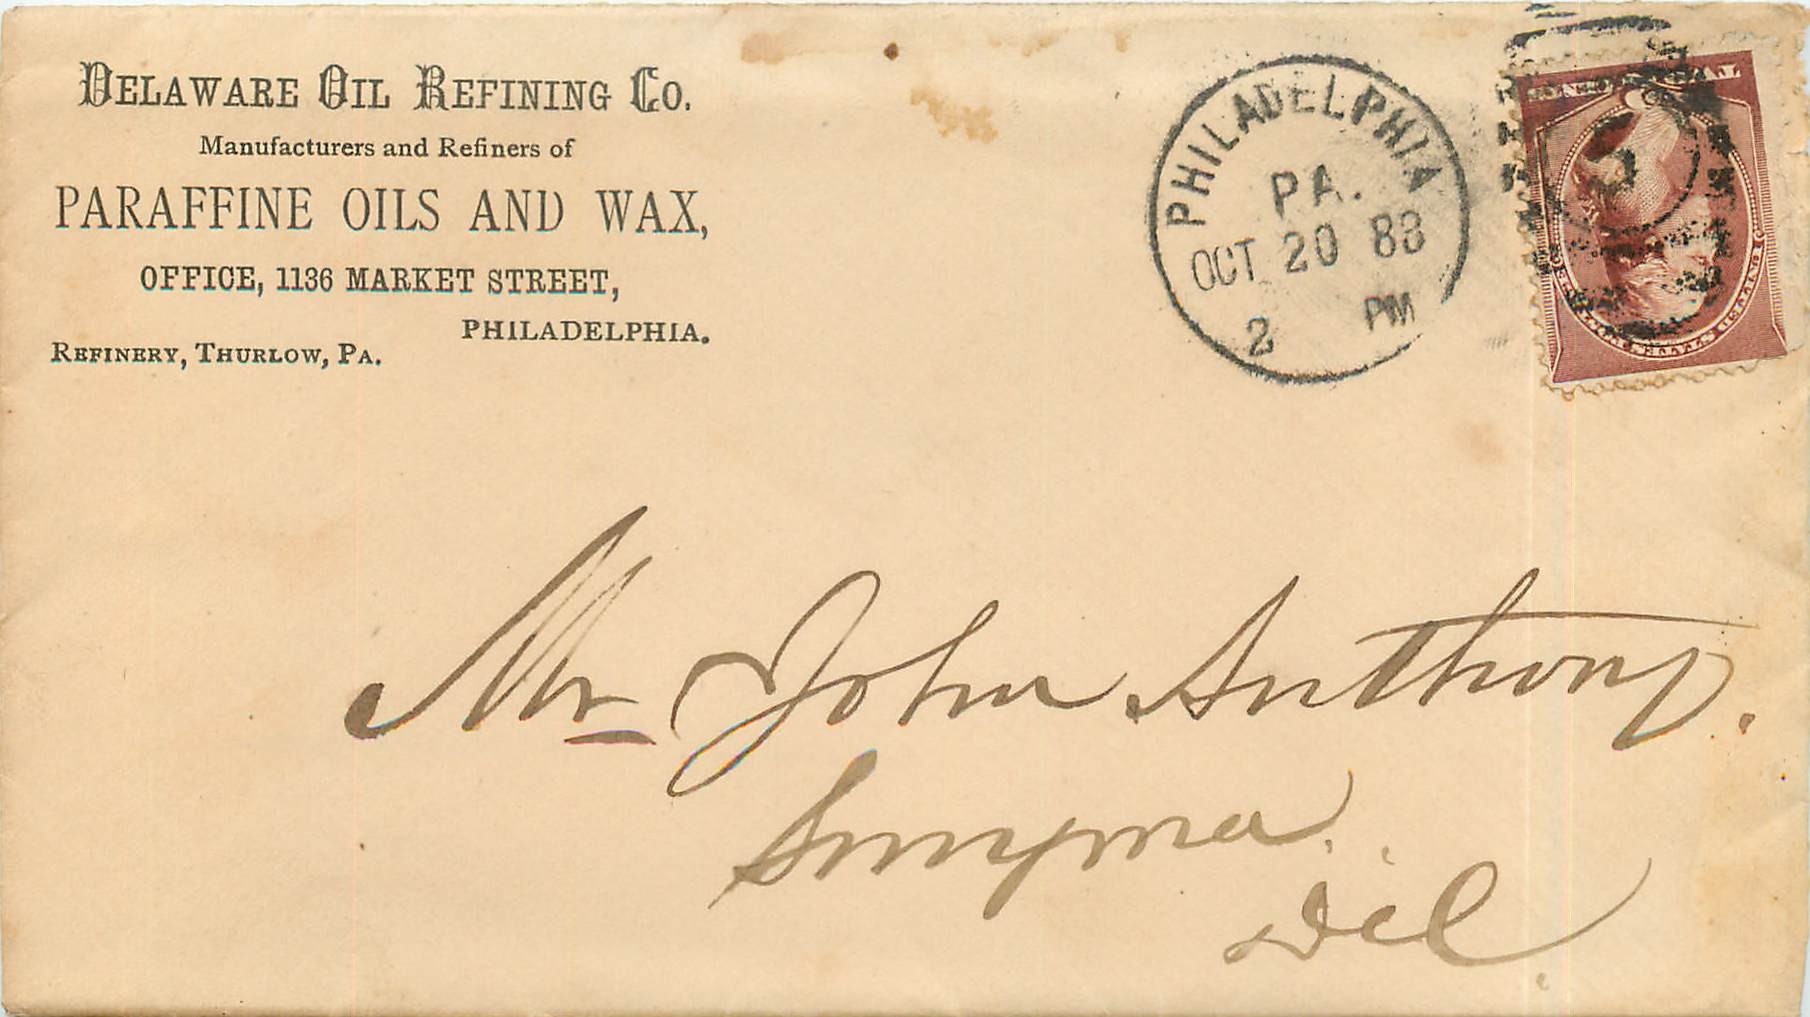 DELAWARE OIL REFINING CO.
Manufacturers and Refiners of
PARAFFINE OILS AND WAX,
OFFICE, 1136 MARKET STREET,
PHILADELPHIA.
REFINERY, THURLOW, PA.
PHILADELPHIA
PA.
OCT 20 88
2 PM
Mr John Anthony.
Smyrna.
Del.